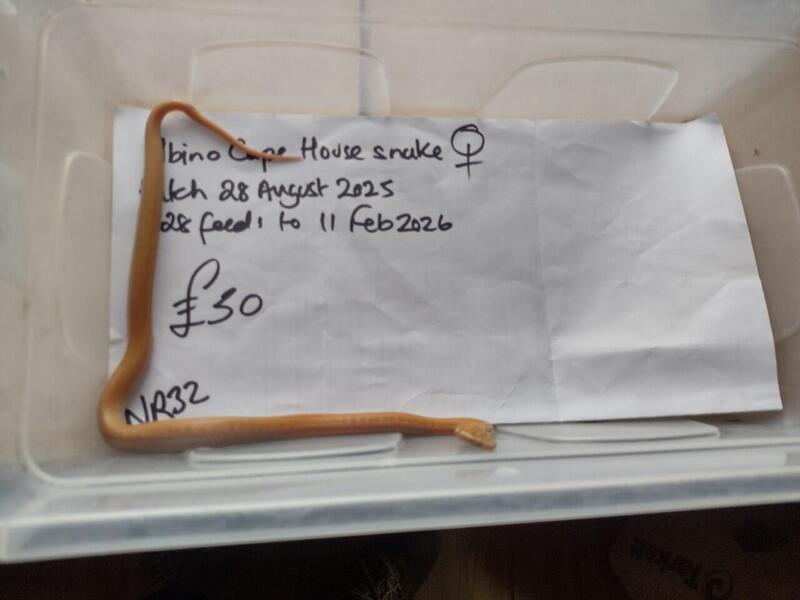 lbino Cape House snake ♀
tch 28 August 2025
28 feeds to 11 Feb 2026
£30
NR32
Tarkett